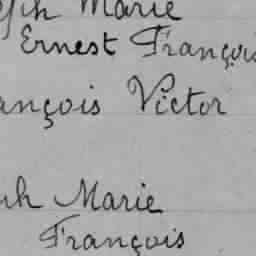 Marie
Ernest François
ançois Victor
Marie
François